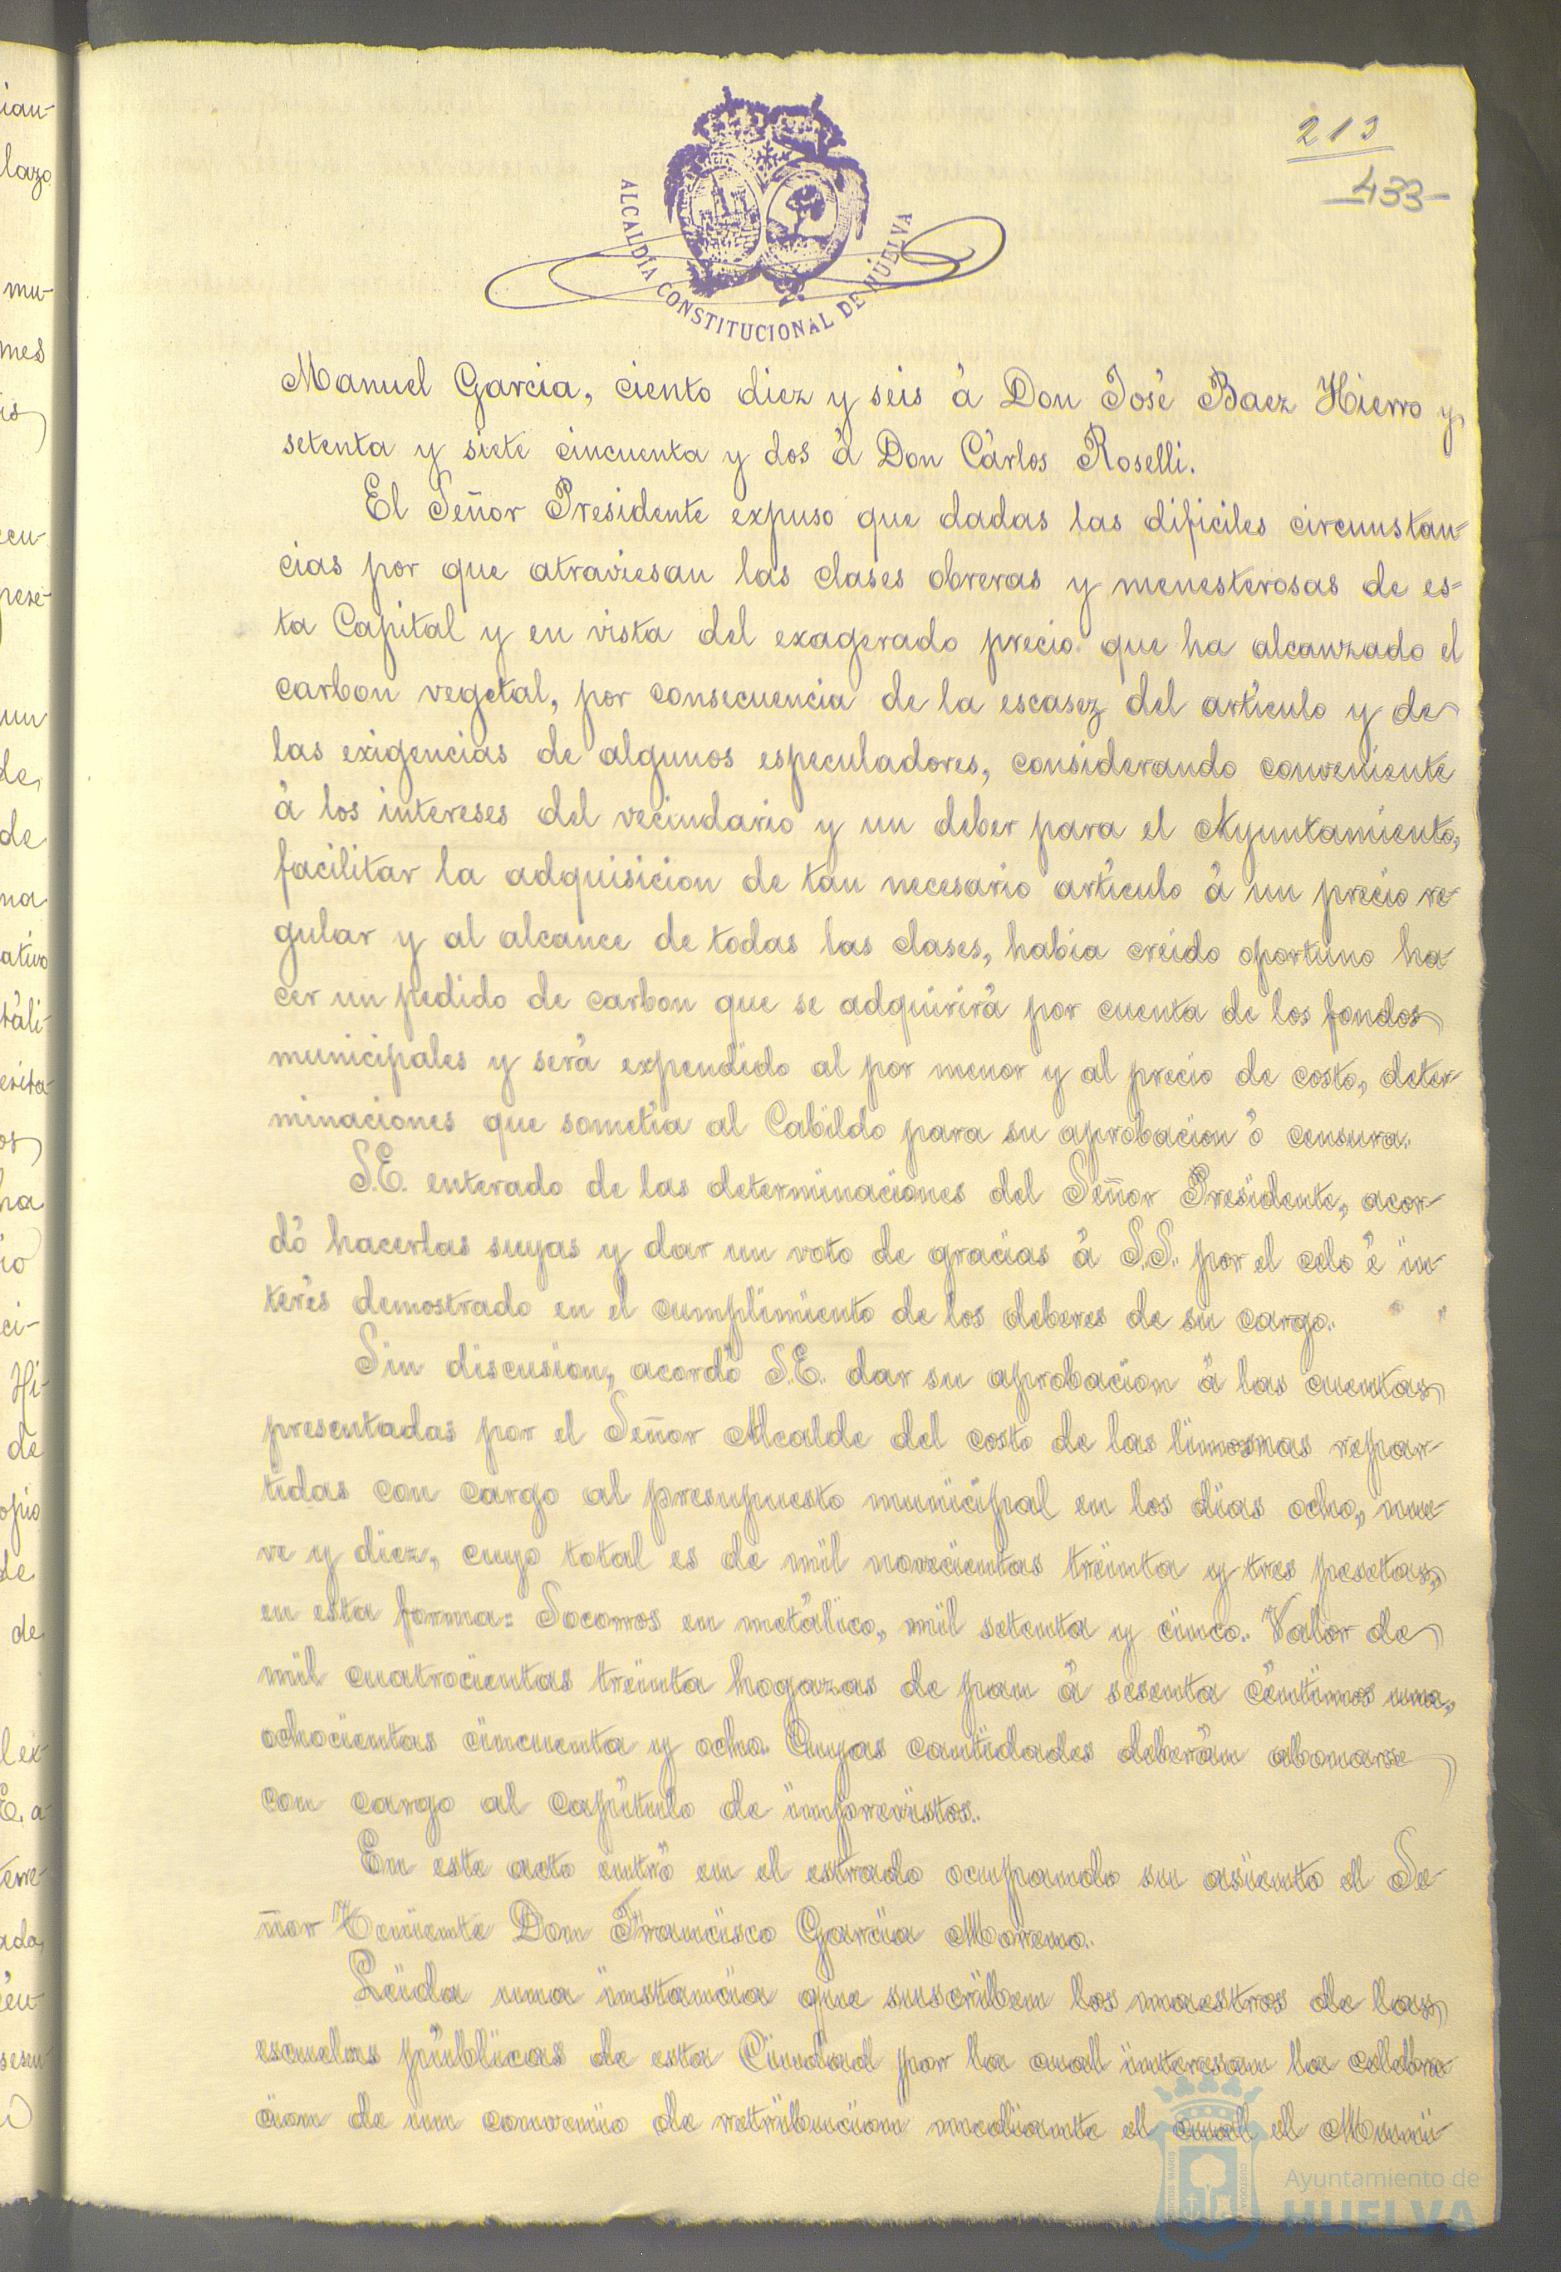 213
433
ALCALDÍA CONSTITUCIONAL DE HUELVA
Manuel Garcia, ciento diez y seis á Don José Baez Hierro y
setenta y siete cincuenta y dos á Don Cárlos Roselli.
El Señor Presidente expuso que dadas las dificiles circunstan-
cias por que atraviesan las clases obreras y menesterosas de es-
ta Capital y en vista del exagerado precio que ha alcanzado el
carbon vegetal, por consecuencia de la escasez del artículo y de
las exigencias de algunos especuladores, considerando conveniente
á los intereses del vecindario y un deber para el Ayuntamiento,
facilitar la adquisicion de tan necesario artículo á un precio re-
gular y al alcance de todas las clases, habia creido oportuno ha-
cer un pedido de carbon que se adquirirá por cuenta de los fondos
municipales y será expendido al por menor y al precio de costo, deter-
minaciones que sometía al Cabildo para su aprobacion ó censura.
S.E. enterado de las determinaciones del Señor Presidente, acor-
dó hacerlas suyas y dar un voto de gracias á S.S. por el celo é in-
terés demostrado en el cumplimiento de los deberes de su cargo.
Sin discusion, acordó S.E. dar su aprobacion á las cuentas
presentadas por el Señor Alcalde del costo de las limosnas repar-
tidas con cargo al presupuesto municipal en los dias ocho, nue-
ve y diez, cuyo total es de mil novecientas treinta y tres pesetas,
en esta forma: Socorros en metálico, mil setenta y cinco. Valor de
mil cuatrocientas treinta hogazas de pan á sesenta céntimos una,
ochocientas cincuenta y ocho. Cuyas cantidades deberán abonarse
con cargo al capítulo de imprevistos.
En este acto entró en el estrado ocupando su asiento el Se-
ñor Teniente Don Francisco Garcia Moreno.
Leida una instancia que suscriben los maestros de las
escuelas públicas de esta Ciudad por la cual interesan la celebra
cion de un convenio de retribucion mediante el cual el Muni-
Ayuntamiento de
HUELVA